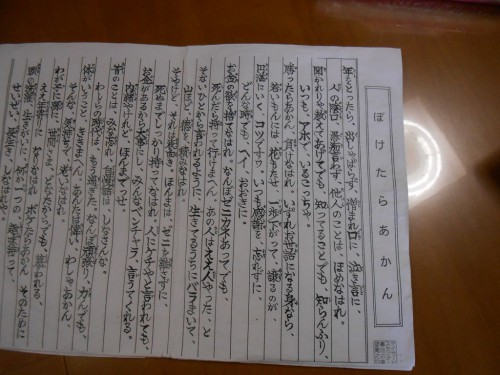 ぼけたらあかん
年をとったら、出しゃばらず、憎まれ口に、泣き言に、
人の陰口、愚痴言わず、他人のことは、ほめなはれ。
聞かれりゃ教えてあげてでも、知ってることでも、知らんふり、
いつでも、アホで、いるこっちゃ。
勝ったらあかん、負けなはれ、いずれお世話になる身なら、
若いもんには、花もたせ、一歩下がって、譲るのが、
円満にいく、コツですわ、いつも感謝を、忘れずに、
どんな時でも、へイ、おおきに。
お金の欲を捨てなはれ、なんぼゼニカネあってでも、
死んだら持って行けまへん、あの人はええ人やった、と
そないひとから言われるように、生きてるうちにバラまいて、
山ほど、徳を、積みなはれ。
そやけど、それは表向き、ほんまは、ゼニを、離さずに、
死ぬまでしっかり持ってなはれ、人にケチやと言われても、
お金があるから大事にし、みんなベンチャラ、言うてくれる。
内緒やけんど、ほんまでっせ。
昔のことは、みな忘れ、自慢話は、しなさんな、
わしらの時代は、もう過ぎた、なんぼ頑張り、力んでも、
体がいうこと、ききまへん、あんたは偉い、わしゃあかん、
そんな気持ちで、老いなはれ。
わが子に孫に、世間さま、どなたからでも、慕われる、
ええ年寄りに、なりなはれ、ボケたらあかん、そのために
頭の洗濯、生きがいに、何か一つの、趣味持って、
せいぜい、長生き、しなはれや。